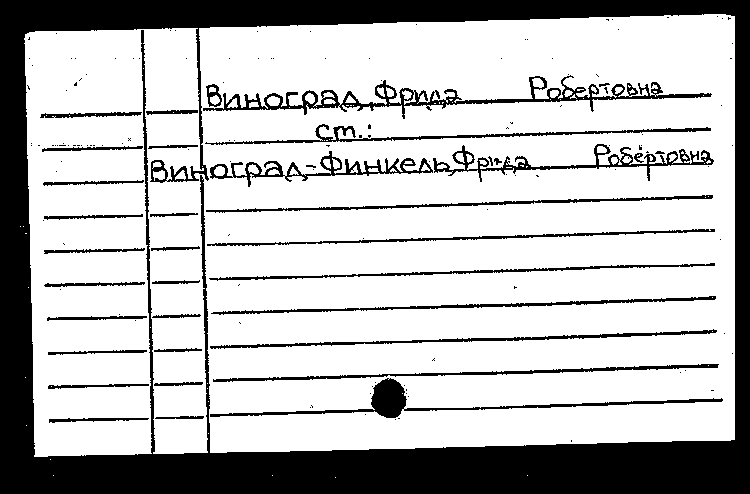 Виноград, Фрида Робертовна
ст.:
Виноград-Финкель, Фрида Робертовна